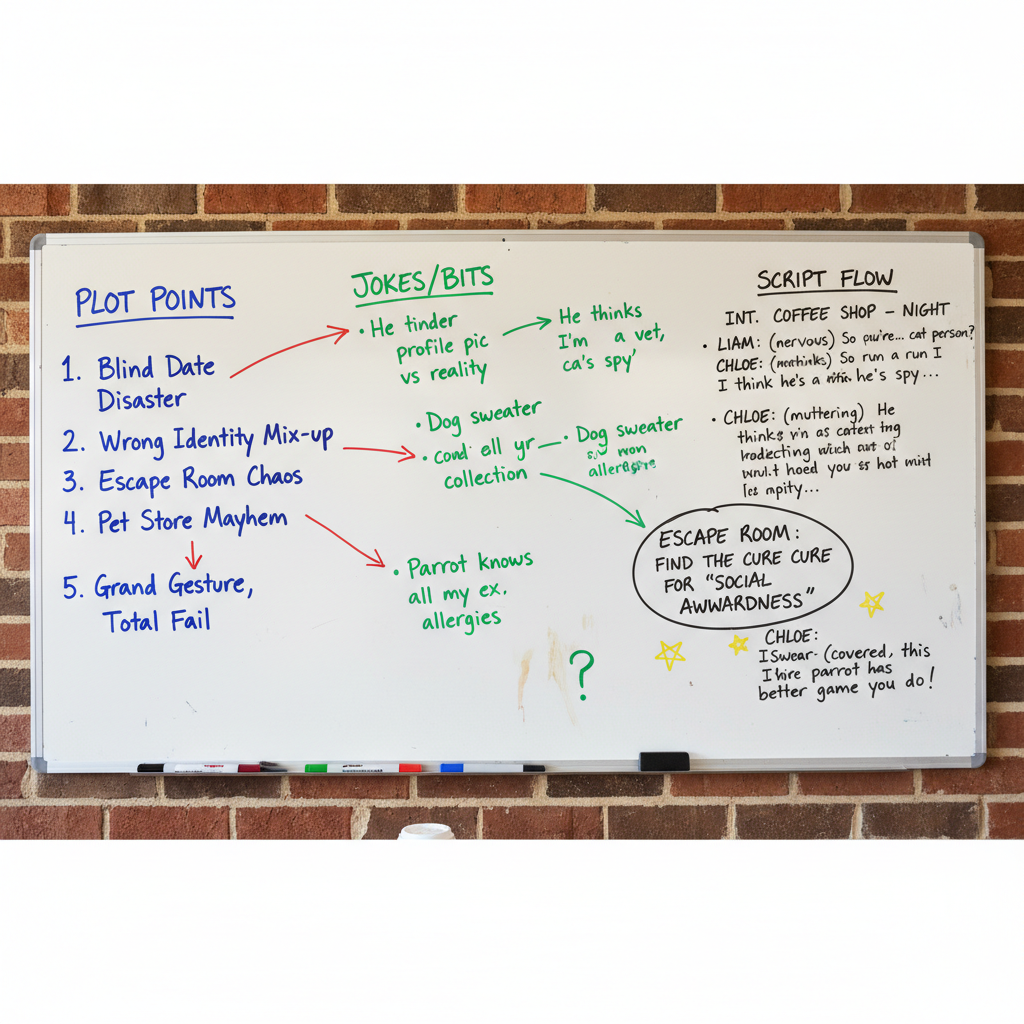 PLOT POINTS
1. Blind Date
Disaster
2. Wrong Identity Mix-up
3. Escape Room Chaos
4. Pet Store Mayhem
5. Grand Gesture,
Total Fail
JOKES/BITS
• He tinder
profile pic
vs reality
He thinks
I'm a vet,
ca's spy'
• Dog sweater
• cond ell yr
collection
• Dog sweater
won
• Parrot knows
all my ex.
allergies
?
SCRIPT FLOW
INT. COFFEE SHOP – NIGHT
• LIAM: (nervous) So cat person?
CHLOE: So run a run I
I think he's a he's spy...
• CHLOE: (muttering) He
thinks as
out of
hoed you hot
ESCAPE ROOM:
FIND THE CURE CURE
FOR "SOCIAL
AWWARDNESS"
CHLOE:
ISwear- (covered, this
parrot has
better game you do!